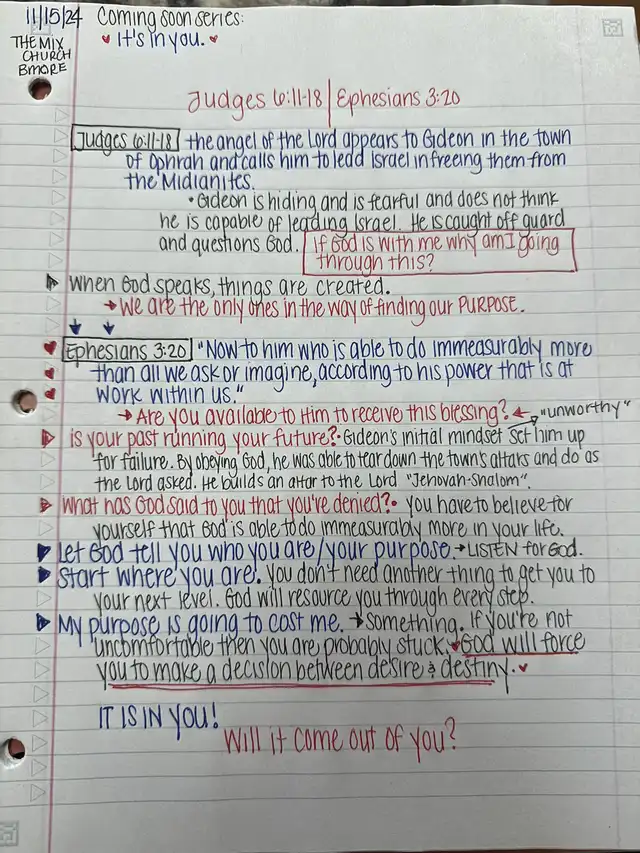 11/15/24 Coming soon series:
THE MIX CHURCH BMORE
♥ It's in you. ♥
Judges 6:11-18 | Ephesians 3:20
Judges 6:11-18 the angel of the Lord appears to Gideon in the town
of Ophrah and calls him to lead Israel in freeing them from
the Midianites.
• Gideon is hiding and is fearful and does not think
he is capable of leading Israel. He is caught off guard
and questions God. If God is with me why am I going
through this?
When God speaks, things are created.
→ We are the only ones in the way of finding our PURPOSE.
Ephesians 3:20 "Now to him who is able to do immeasurably more
than all we ask or imagine, according to his power that is at
work within us."
→ Are you available to Him to receive this blessing? ← "unworthy"
Is your past running your future? • Gideon's initial mindset set him up
for failure. By obeying God, he was able to tear down the town's altars and do as
the Lord asked. He builds an altar to the Lord "Jehovah-Shalom".
What has God said to you that you've denied? • You have to believe for
yourself that God is able to do immeasurably more in your life.
Let God tell you who you are/your purpose. → LISTEN for God.
Start where you are. You don't need another thing to get you to
your next level. God will resource you through every step.
My purpose is going to cost me. → Something. If you're not
uncomfortable then you are probably stuck. ♥ God will force
you to make a decision between desire & destiny. ♥
IT IS IN YOU!
Will it come out of you?